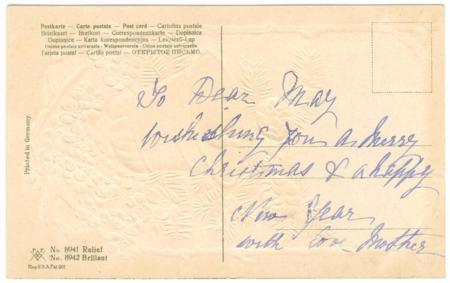 Postkarte — Carte postale — Post card — Cartolina postale
Briefkaart — Brefkort — Correspondenzkarte — Dopisnica
Dopisnice — Karta korespondencyjna — Levelező-Lap
Unione postale universale — Weltpostverein — Union postale universelle
Tarjeta postal — Cartão postal — ОТКРЫТОЕ ПИСЬМО.
Printed in Germany.
To Dear May
wishing you a merry
Christmas & a happy
New Year
with love Mother
No. 8941 Relief
No. 8942 Brillant